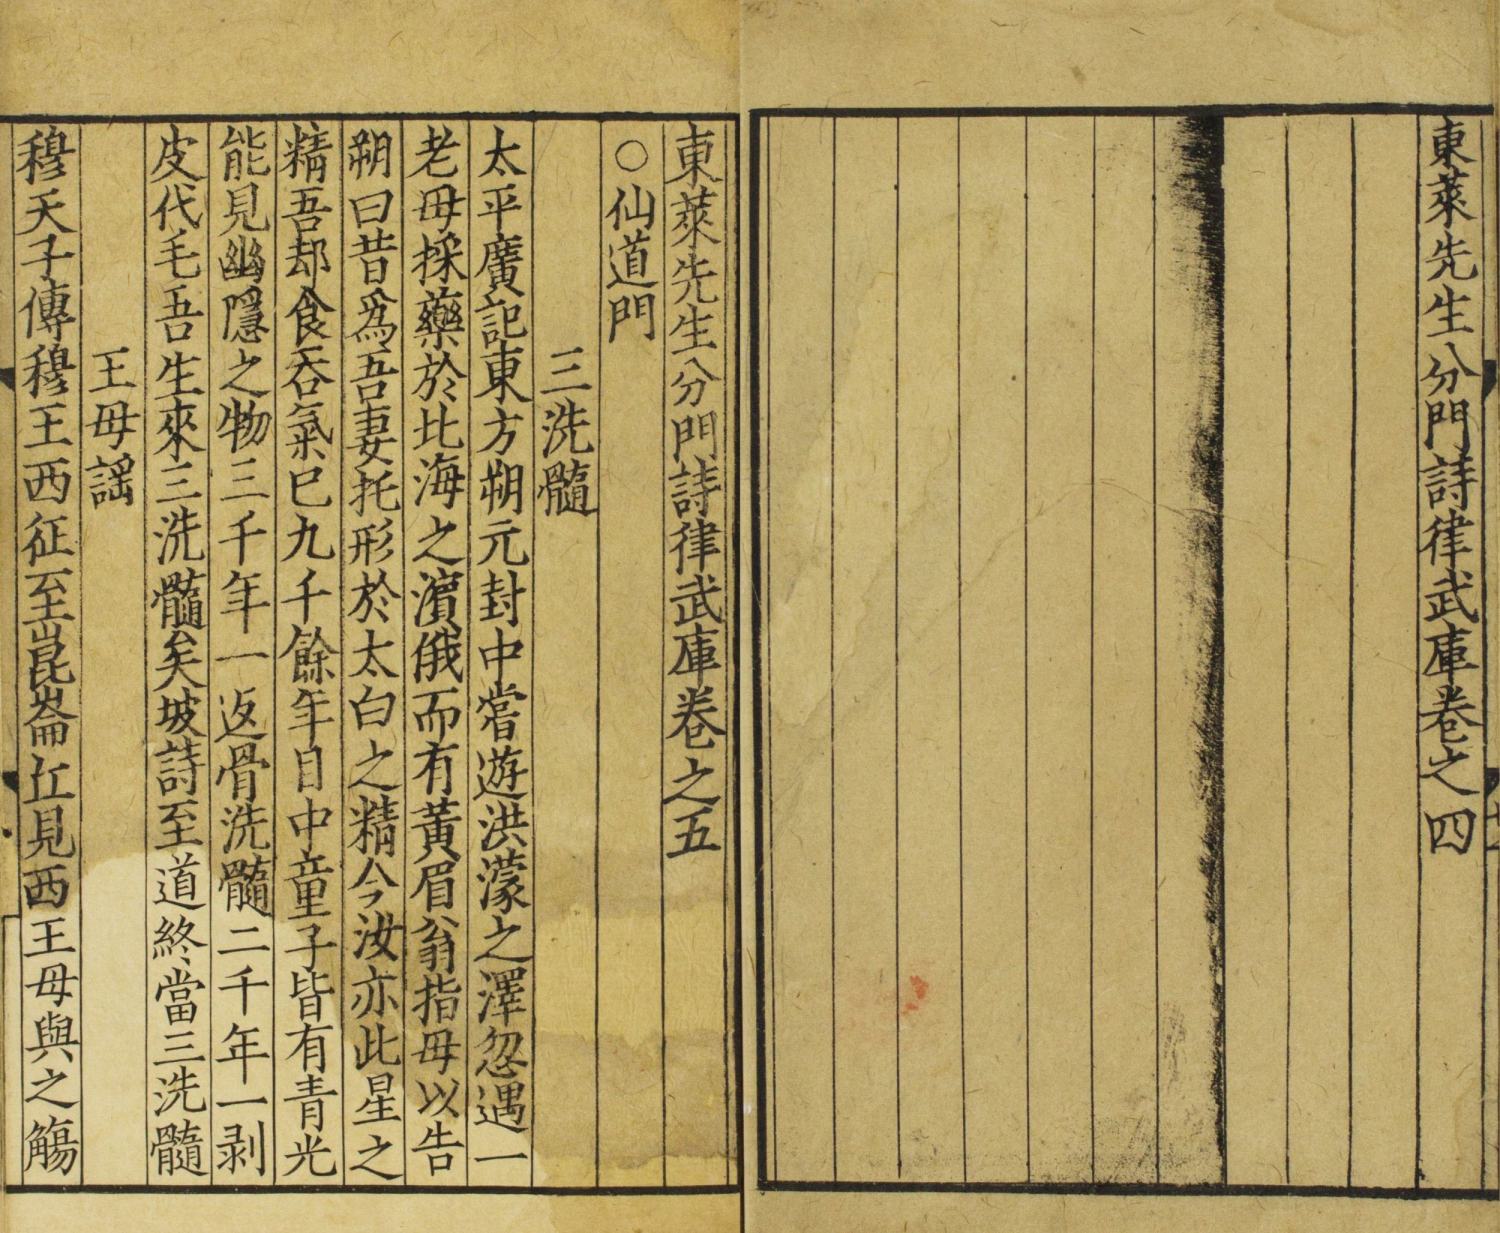 東萊先生分門詩律武庫卷之四
東萊先生分門詩律武庫卷之五
○仙道門
三洗髓
太平廣記東方朔元封中嘗遊洪濛之澤忽遇一
老母採藥於北海之濵俄而有黃眉翁指母以告
朔曰昔爲吾妻托形於太白之精今汝亦此星之
精吾却食吞氣巳九千餘年目中童子皆有青光
能見幽隱之物三千年一返骨洗髓二千年一剥
皮代毛吾生來三洗髓矣坡詩至道終當三洗髓
王母謡
穆天子傳穆王西征至崑崙丘見西王母與之觴